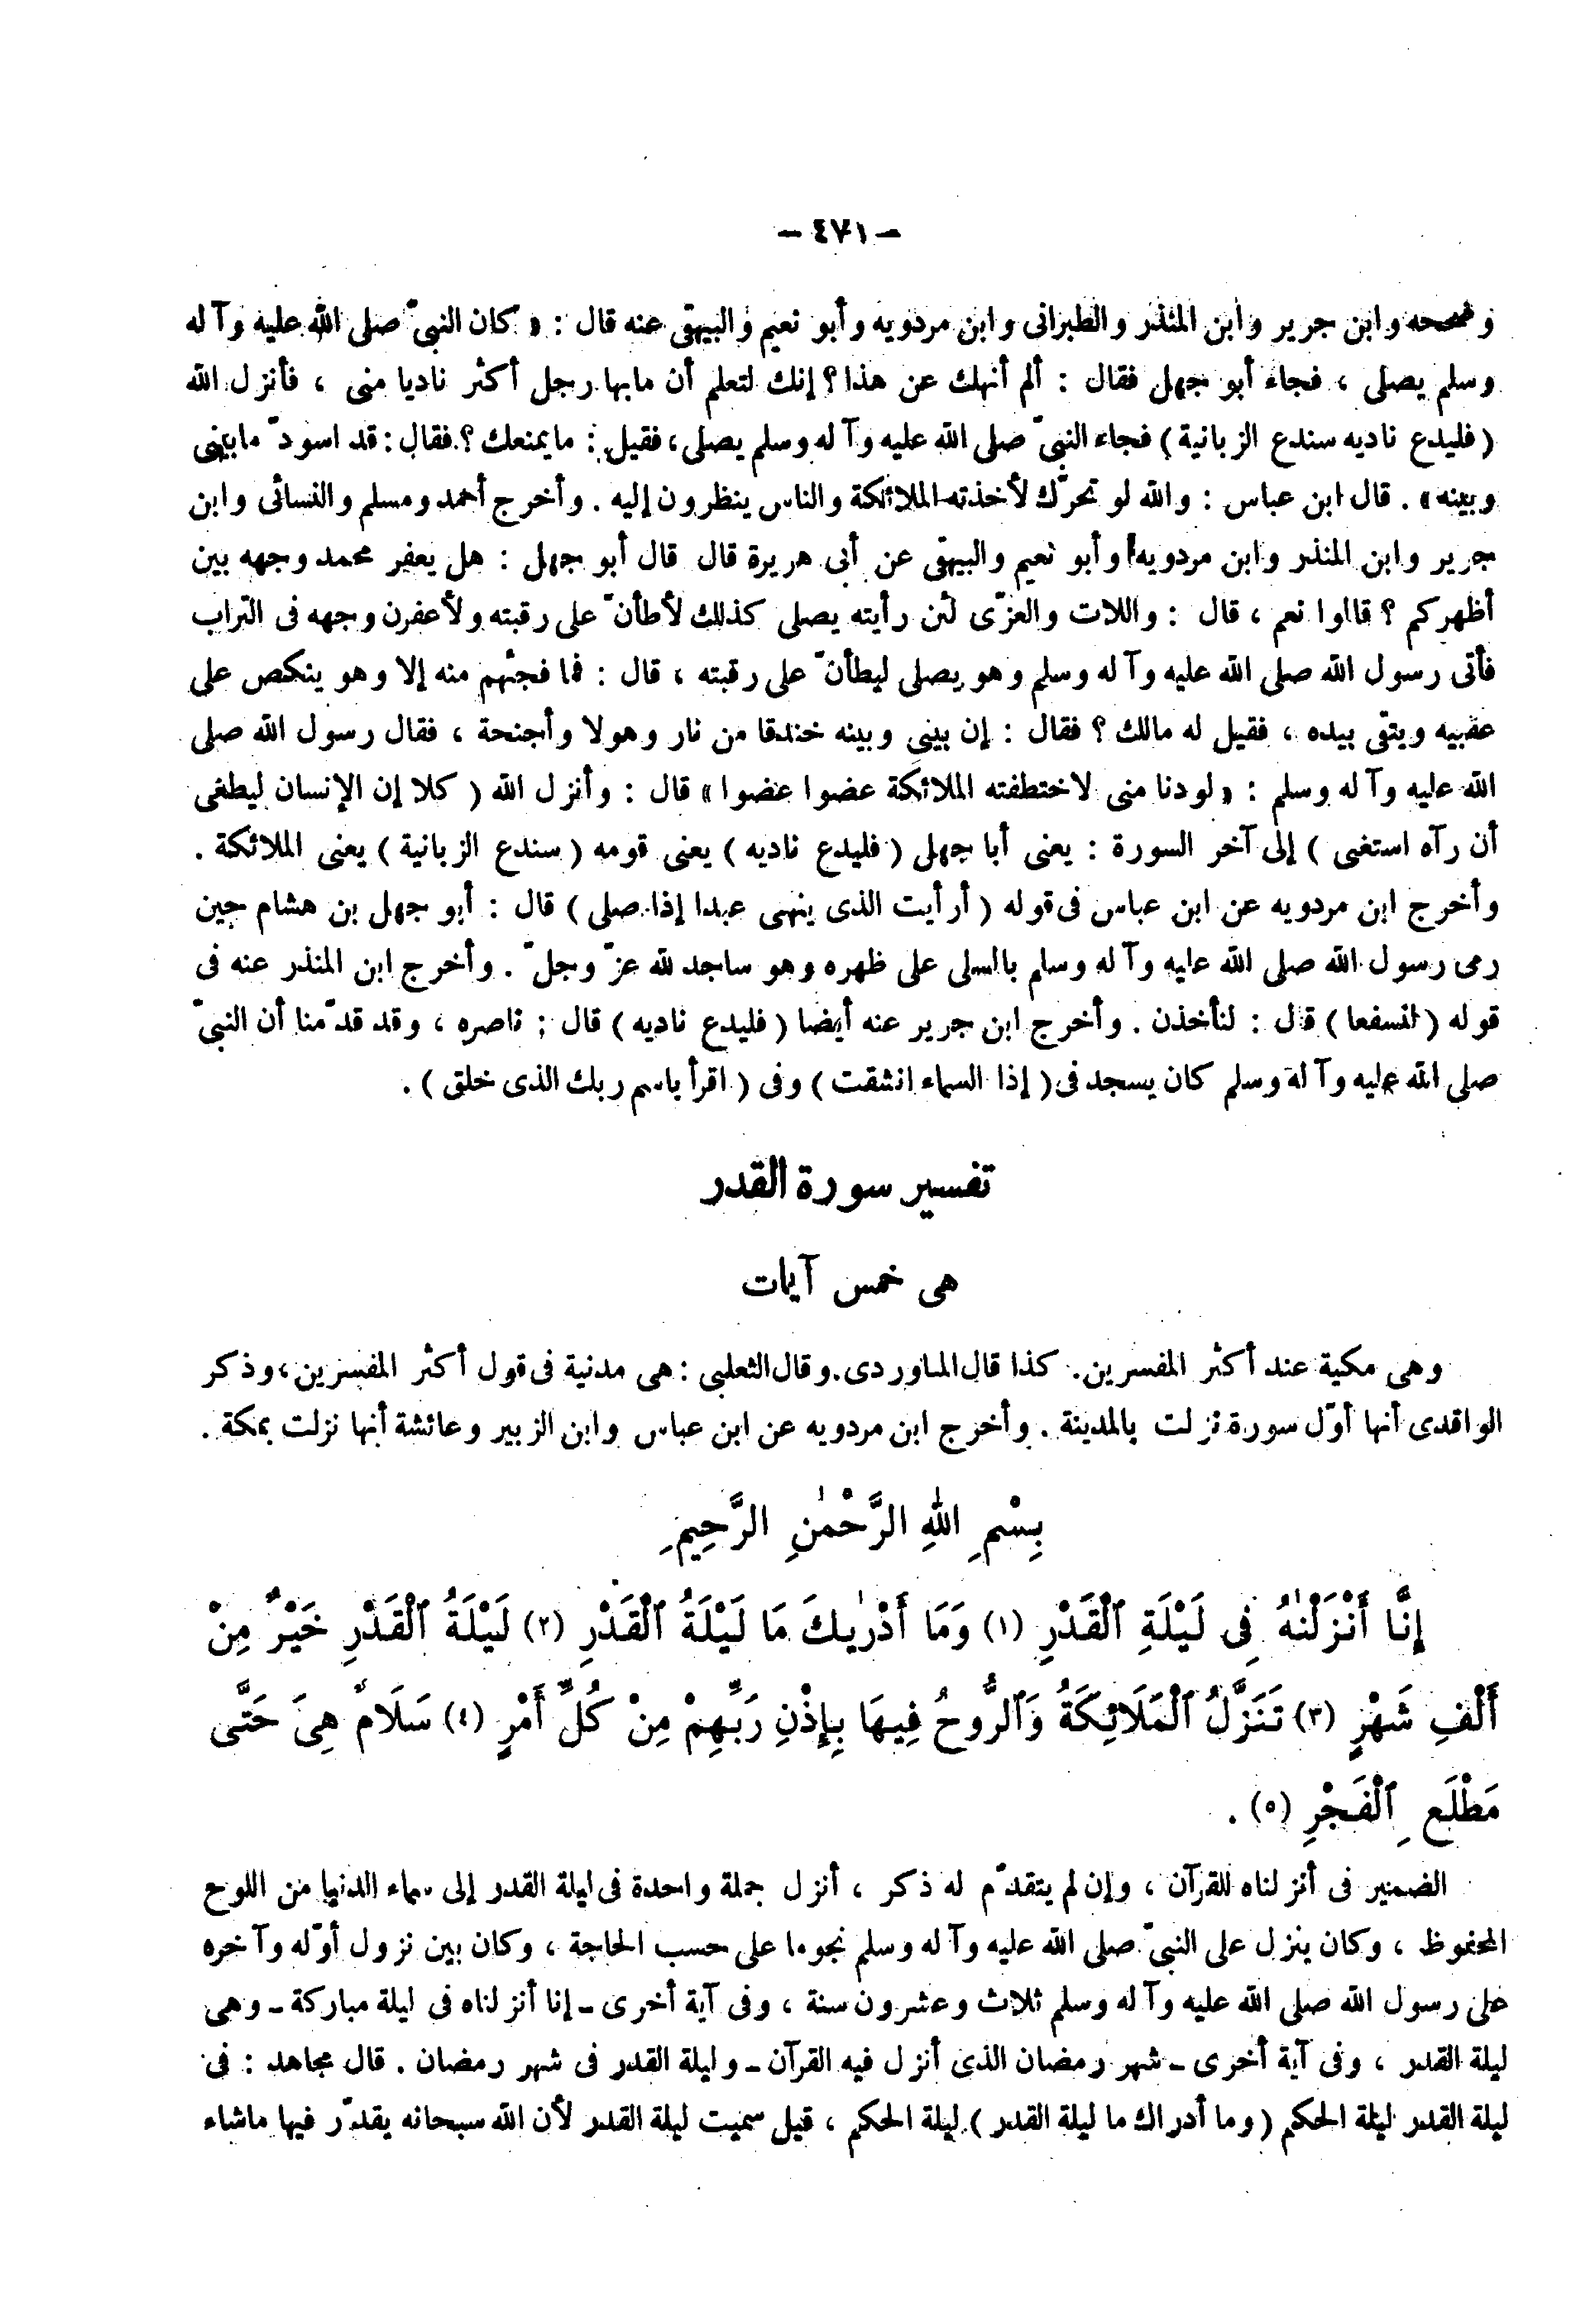 - ٤٧١ -
وصححه وابن جرير وابن المنذر والطبرانى وابن مردويه وأبو نعيم والبيهقى عنه قال : « كان النبىّ صلى الله عليه وآ له
وسلم يصلى ، فجاء أبو جهل فقال : ألم أنهك عن هذا ؟ إنك لتعلم أن مابها رجل أكثر ناديا منى ، فأنزل الله
( فليدع ناديه سندع الزبانية ) فجاء النبىّ صلى الله عليه وآ له وسلم يصلى ، فقيل : مايمنعك ؟ فقال : قد اسودّ مابينى
وبينه » . قال ابن عباس : والله لو تحرّك لأخذته الملائكة والناس ينظرون إليه . وأخرج أحمد ومسلم والنسائى وابن
جرير وابن المنذر وابن مردويه وأبو نعيم والبيهقى عن أبى هريرة قال قال أبو جهل : هل يعفر محمد وجهه بين
أظهركم ؟ قالوا نعم ، قال : واللات والعزّى لئن رأيته يصلى كذلك لأطأنّ على رقبته ولأعفرن وجهه فى التراب
فأتى رسول الله صلى الله عليه وآ له وسلم وهو يصلى ليطأنّ على رقبته ، قال : فما فجئهم منه إلا وهو ينكص على
عقبيه ويتقى بيده ، فقيل له مالك ؟ فقال : إن بينى وبينه خندقا من نار وهولا وأجنحة ، فقال رسول الله صلى
الله عليه وآ له وسلم : « لودنا منى لاختطفته الملائكة عضوا عضوا » قال : وأنزل الله ( كلا إن الإنسان ليطغى
أن رآه استغنى ) إلى آخر السورة : يعنى أبا جهل ( فليدع ناديه ) يعنى قومه ( سندع الزبانية ) يعنى الملائكة .
وأخرج ابن مردويه عن ابن عباس فى قوله ( أرأيت الذى ينهى عبدا إذا صلى ) قال : أبو جهل بن هشام حين
رمى رسول الله صلى الله عليه وآ له وسلم بالسلى على ظهره وهو ساجد لله عزّ وجلّ . وأخرج ابن المنذر عنه فى
قوله ( لنسفعا ) قال : لنأخذن . وأخرج ابن جرير عنه أيضا ( فليدع ناديه ) قال : ناصره ، وقد قدّمنا أن النبىّ
صلى الله عليه وآ له وسلم كان يسجد فى ( إذا السماء انشقت ) وفى ( اقرأ باسم ربك الذى خلق ) .
تفسير سورة القدر
هى خمس آيات
وهى مكية عند أكثر المفسرين . كذا قال الماوردى . وقال الثعلبى : هى مدنية فى قول أكثر المفسرين ، وذكر
الواقدى أنها أوّل سورة نزلت بالمدينة . وأخرج ابن مردويه عن ابن عباس وابن الزبير وعائشة أنها نزلت بمكة .
بِسْمِ اللهِ الرَّحْمٰنِ الرَّحِيمِ
إِنَّا أَنْزَلْنٰهُ فِى لَيْلَةِ ٱلْقَدْرِ (١) وَمَا أَدْرٰيكَ مَا لَيْلَةُ ٱلْقَدْرِ (٢) لَيْلَةُ ٱلْقَدْرِ خَيْرٌ مِنْ
أَلْفِ شَهْرٍ (٣) تَنَزَّلُ ٱلْمَلَائِكَةُ وَٱلرُّوحُ فِيهَا بِإِذْنِ رَبِّهِمْ مِنْ كُلِّ أَمْرٍ (٤) سَلَامٌ هِىَ حَتَّى
مَطْلَعِ ٱلْفَجْرِ (٥) .
الضمير فى أنزلناه للقرآن ، وإن لم يتقدّم له ذكر ، أنزل جملة واحدة فى ليلة القدر إلى سماء الدنيا من اللوح
المحفوظ ، وكان ينزل على النبىّ صلى الله عليه وآ له وسلم نجوما على حسب الحاجة ، وكان بين نزول أوّله وآخره
على رسول الله صلى الله عليه وآ له وسلم ثلاث وعشرون سنة ، وفى آية أخرى - إنا أنزلناه فى ليلة مباركة - وهى
ليلة القدر ، وفى آية أخرى - شهر رمضان الذى أنزل فيه القرآن - وليلة القدر فى شهر رمضان . قال مجاهد : فى
ليلة القدر ليلة الحكم ( وما أدراك ما ليلة القدر ) ليلة الحكم ، قيل سميت ليلة القدر لأن الله سبحانه يقدّر فيها ماشاء